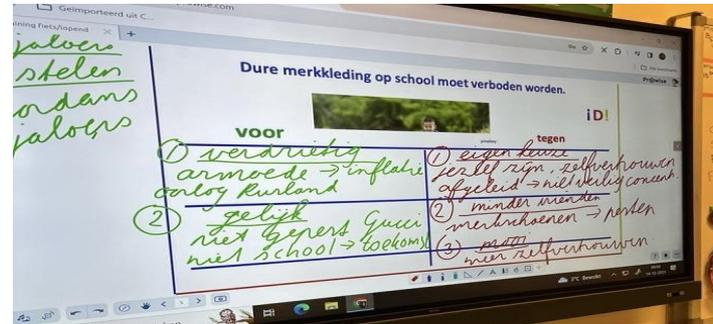 Geïmporteerd uit C...
wise.com
ining fiets/lopend
Prowise
Dure merkkleding op school moet verboden worden.
iD!
jaloers
stelen
jaloers
voor
① verdrietig
armoede → inflatie
oorlog Rusland
② gelijk
niet gepest Gucci
niet school → toekomst
tegen
① eigen keuze
jezelf zijn, zelfvertrouwen
afgeleid → niet veilig concent.
② minder vrienden
merkschoenen → pesten
③ mooi
meer zelfvertrouwen
Bewolkt